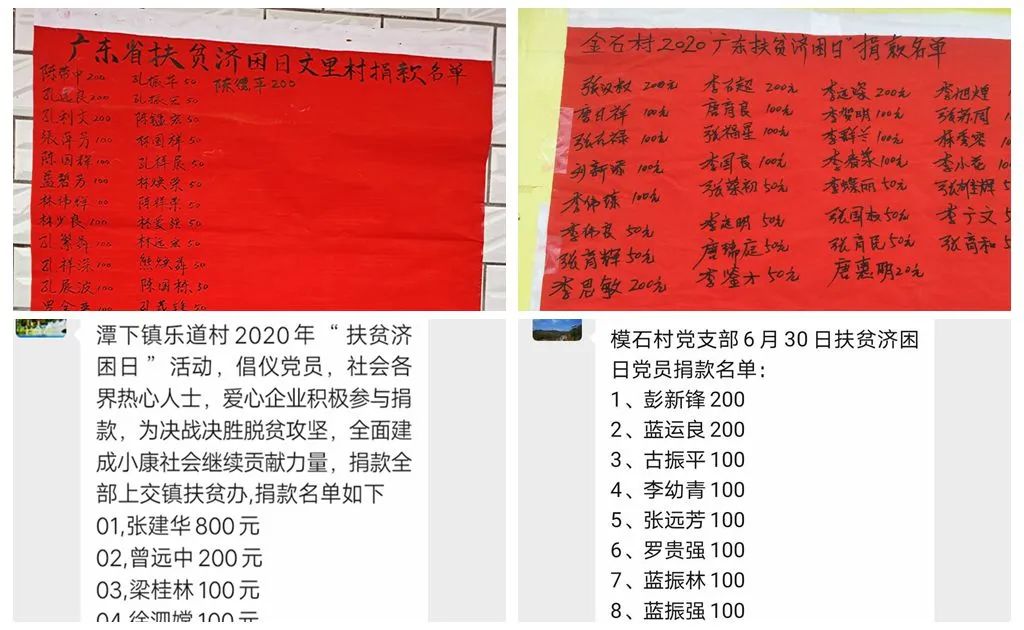 广东省扶贫济困日文里村捐款名单
陈带中200 孔振华50 陈德平200
孔远良200 孔振宏50
孔利文200 陈镜宏50
张萍芳100 林国祥50
陈国辉100 孔祥展50
蓝碧芳100 林焕荣50
林伟祥100 陈祥荣50
林少良100 林爱强50
孔繁昌100 林远宏50
孔祥深100 熊焕群50
孔展波100 陈国栋50
金石村2020"广东扶贫济困日"捐款名单
张汉权200元 李召超200元 李远深200元 李旭煌
唐日祥100元 唐育良100元 李贺明100元
张石禄100元 张福星100元 李群兰100元
刘新环100元 李国良100元 李香泉100元 李小花
李伟臻100元 张荣初50元 李蝶丽50元 张雄辉
李伟良50元 李远明50元 张国权50元 李宁文
张育辉50元 唐瑞庭50元 张育民50元 张育和
李思敏200元 李鉴才50元 唐惠明20元
潭下镇乐道村2020年“扶贫济
困日”活动，倡仪党员，社会各
界热心人士，爱心企业积极参与捐
款，为决战决胜脱贫攻坚，全面建
成小康社会继续贡献力量，捐款全
部上交镇扶贫办,捐款名单如下
01,张建华800元
02,曾远中200元
03,梁桂林100元
04,徐泗嫦100元
模石村党支部6月30日扶贫济困
日党员捐款名单：
1、彭新锋200
2、蓝运良200
3、古振平100
4、李幼青100
5、张远芳100
6、罗贵强100
7、蓝振林100
8、蓝振强100